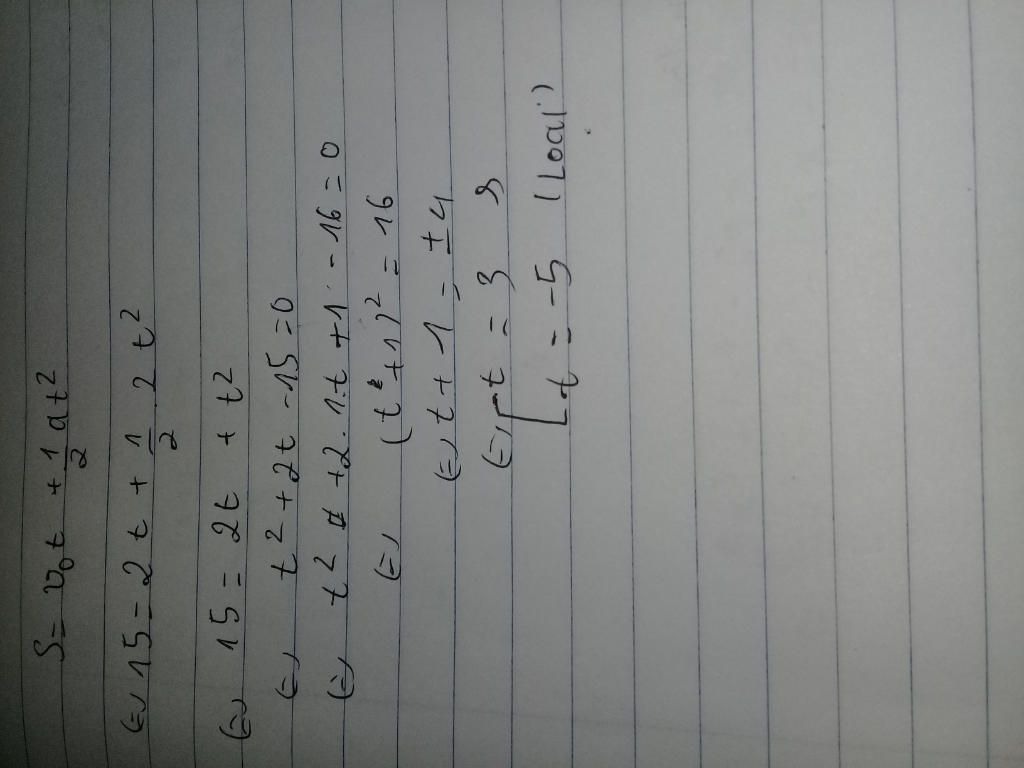 S = v₀t + 1/2 at²
⇔ 15 = 2t + 1/2 2 t²
⇔ 15 = 2t + t²
⇔ t² + 2t - 15 = 0
⇔ t² + 2.1.t + 1 - 16 = 0
⇔ (t + 1)² = 16
⇔ t + 1 = ± 4
⇔ [ t = 3 s
[ t = -5 (Loại)